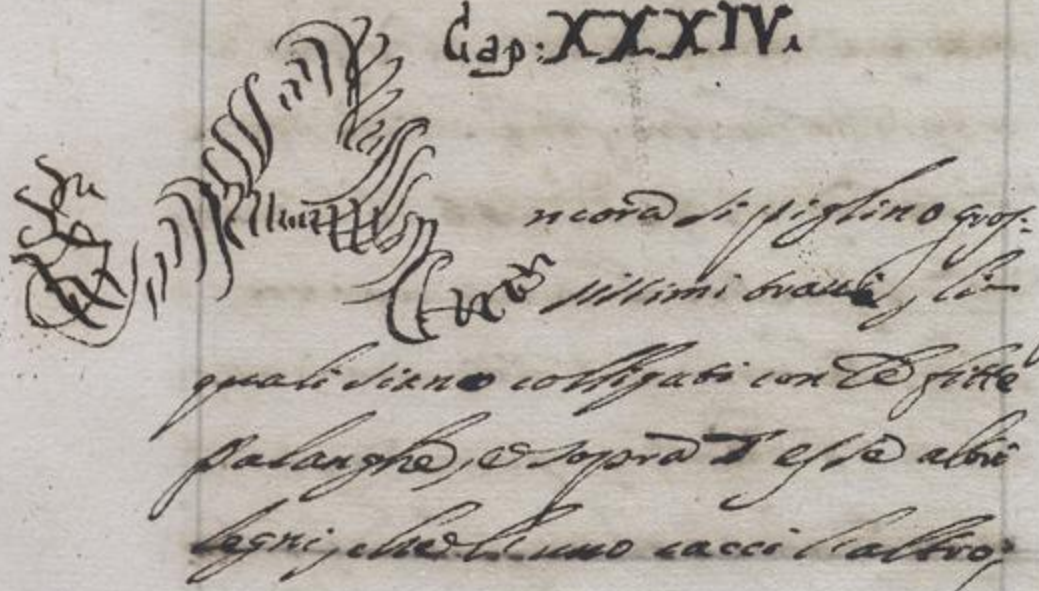 Cap: XXXIV.
Ancora si piglino gros:
sissimi travi, li
quali siano colligati con le fitte
palanghe, e sopra d'esse altri
legni, che l'uno cacci l'altro;